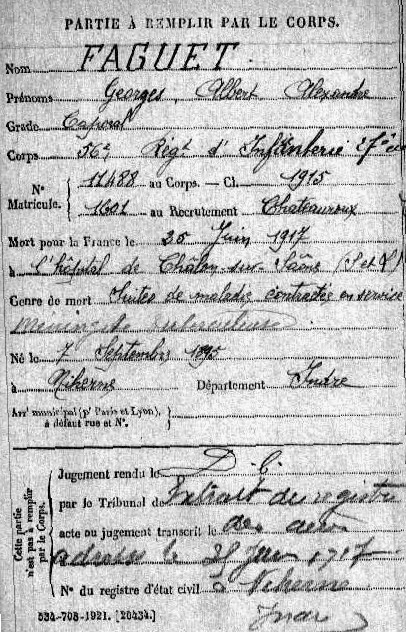 PARTIE À REMPLIR PAR LE CORPS.
Nom FAGUET
Prénoms Georges, Albert Alexandre
Grade Caporal
Corps 56e Régt d'Infanterie
Nº Matricule. 11488 au Corps. — Cl. 1915
1601 au Recrutement Chateauroux
Mort pour la France le 25 Juin 1917
à l'hôpital de Châlon-sur-Saône (S et L)
Genre de mort Suites de maladie contractée en service
Méningite tuberculeuse
Né le 7 Septembre 1895
à Niherne Département Indre
Arrt municipal (pr Paris et Lyon), à défaut rue et Nº.
Cette partie n'est pas à remplir par le Corps.
Jugement rendu le D. C.
par le Tribunal de Extrait du registre
acte ou jugement transcrit le des actes
le 25 Juin 1917
Nº du registre d'état civil à Niherne
Indre
534-708-1921. [26434.]